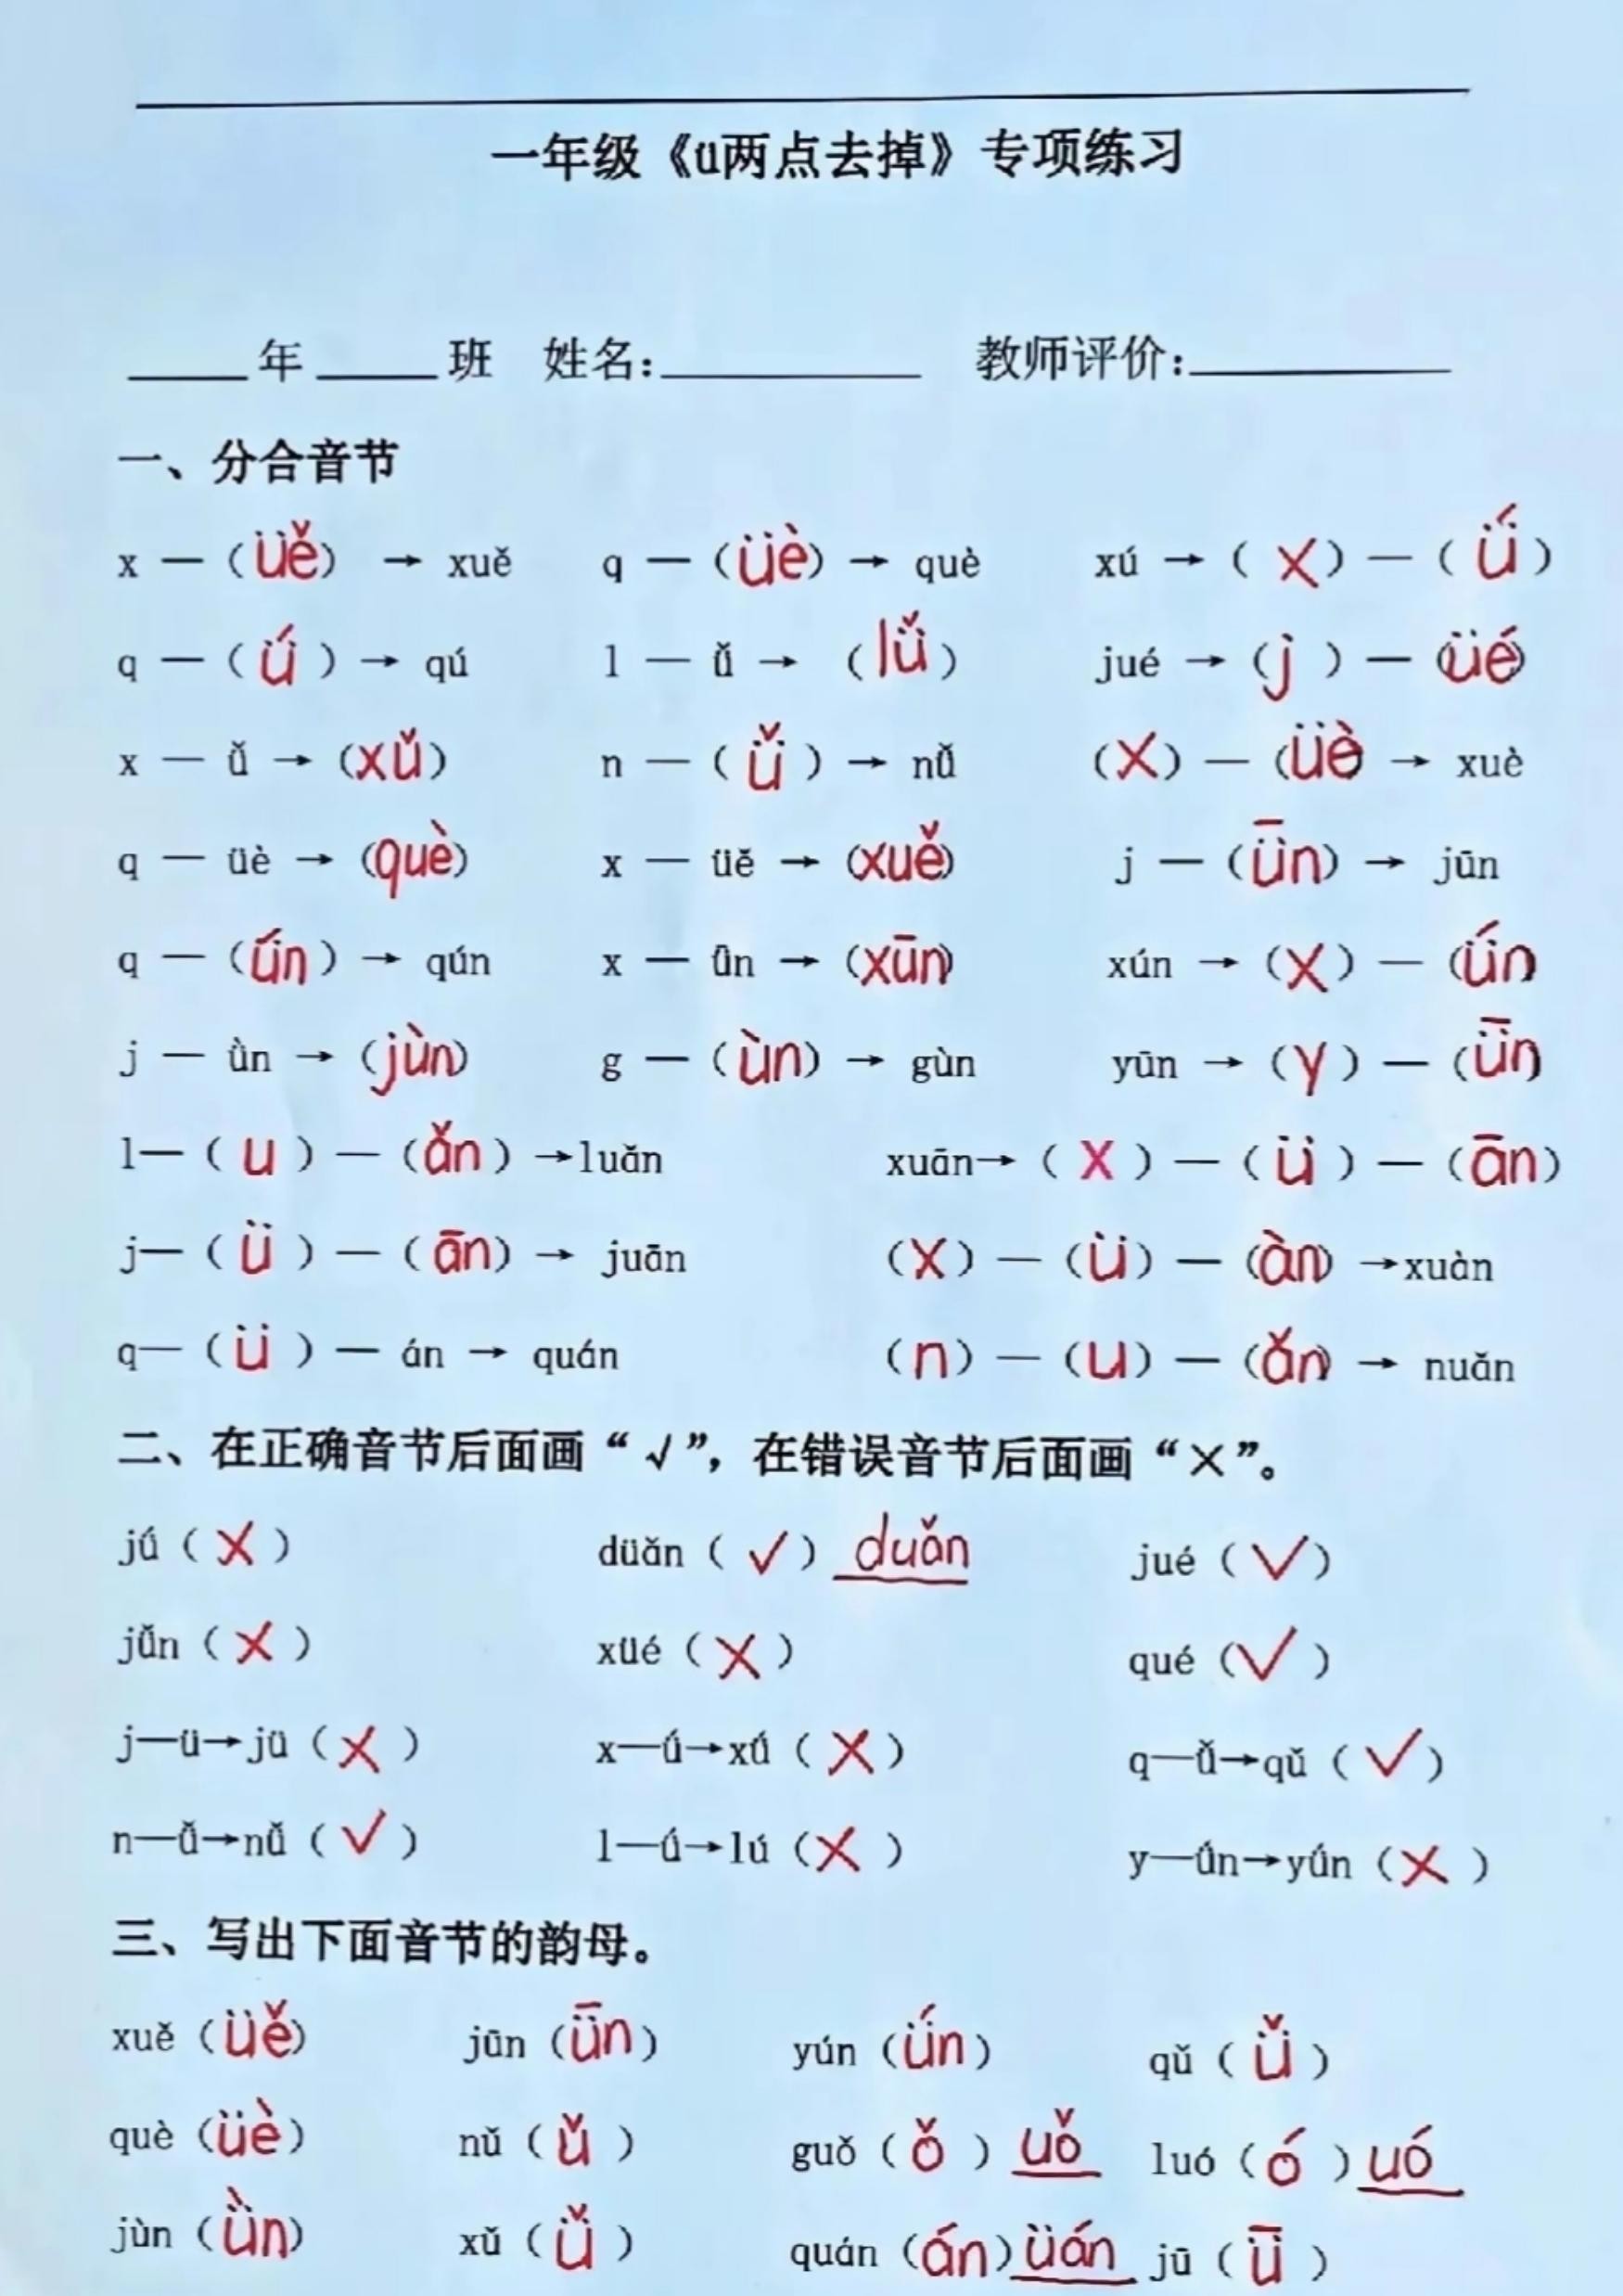 一年级《ü两点去掉》专项练习
____年____班 姓名:________ 教师评价:________
一、分合音节
x —（üě）→ xuě q —（üè）→ què xú →（x）—（ǘ）
q —（ǘ）→ qú l — ǚ →（lǚ） jué →（j）—（üé）
x — ǚ →（xǔ） n —（ǚ）→ nǚ （x）—（üè → xuè
q — üè →（què） x — üě →（xuě） j —（ǖn）→ jūn
q —（ǘn）→ qún x — ǖn →（xūn） xún →（x）—（ǘn）
j — ǜn →（jùn） g —（ùn）→ gùn yūn →（y）—（ǖn）
l—（u）—（ǎn）→luǎn xuān→（x）—（ü）—（ān）
j—（ü）—（ān）→ juān （x）—（ü）—（àn）→xuàn
q—（ü）— án → quán （n）—（u）—（ǎn）→ nuǎn
二、在正确音节后面画“√”，在错误音节后面画“×”。
jǘ（×） düǎn（√）duǎn jué（√）
jǚn（×） xüé（×） qué（√）
j—ü→jü（×） x—ǘ→xǘ（×） q—ǚ→qǔ（√）
n—ǚ→nǚ（√） l—ǘ→lú（×） y—ǘn→yǘn（×）
三、写出下面音节的韵母。
xuě（üě） jūn（ǖn） yún（ǘn） qǔ（ǚ）
què（üè） nǔ（ǔ） guǒ（ǒ）uǒ luó（ó）uó
jùn（ǜn） xǔ（ǚ） quán（án）üán jū（ǖ）